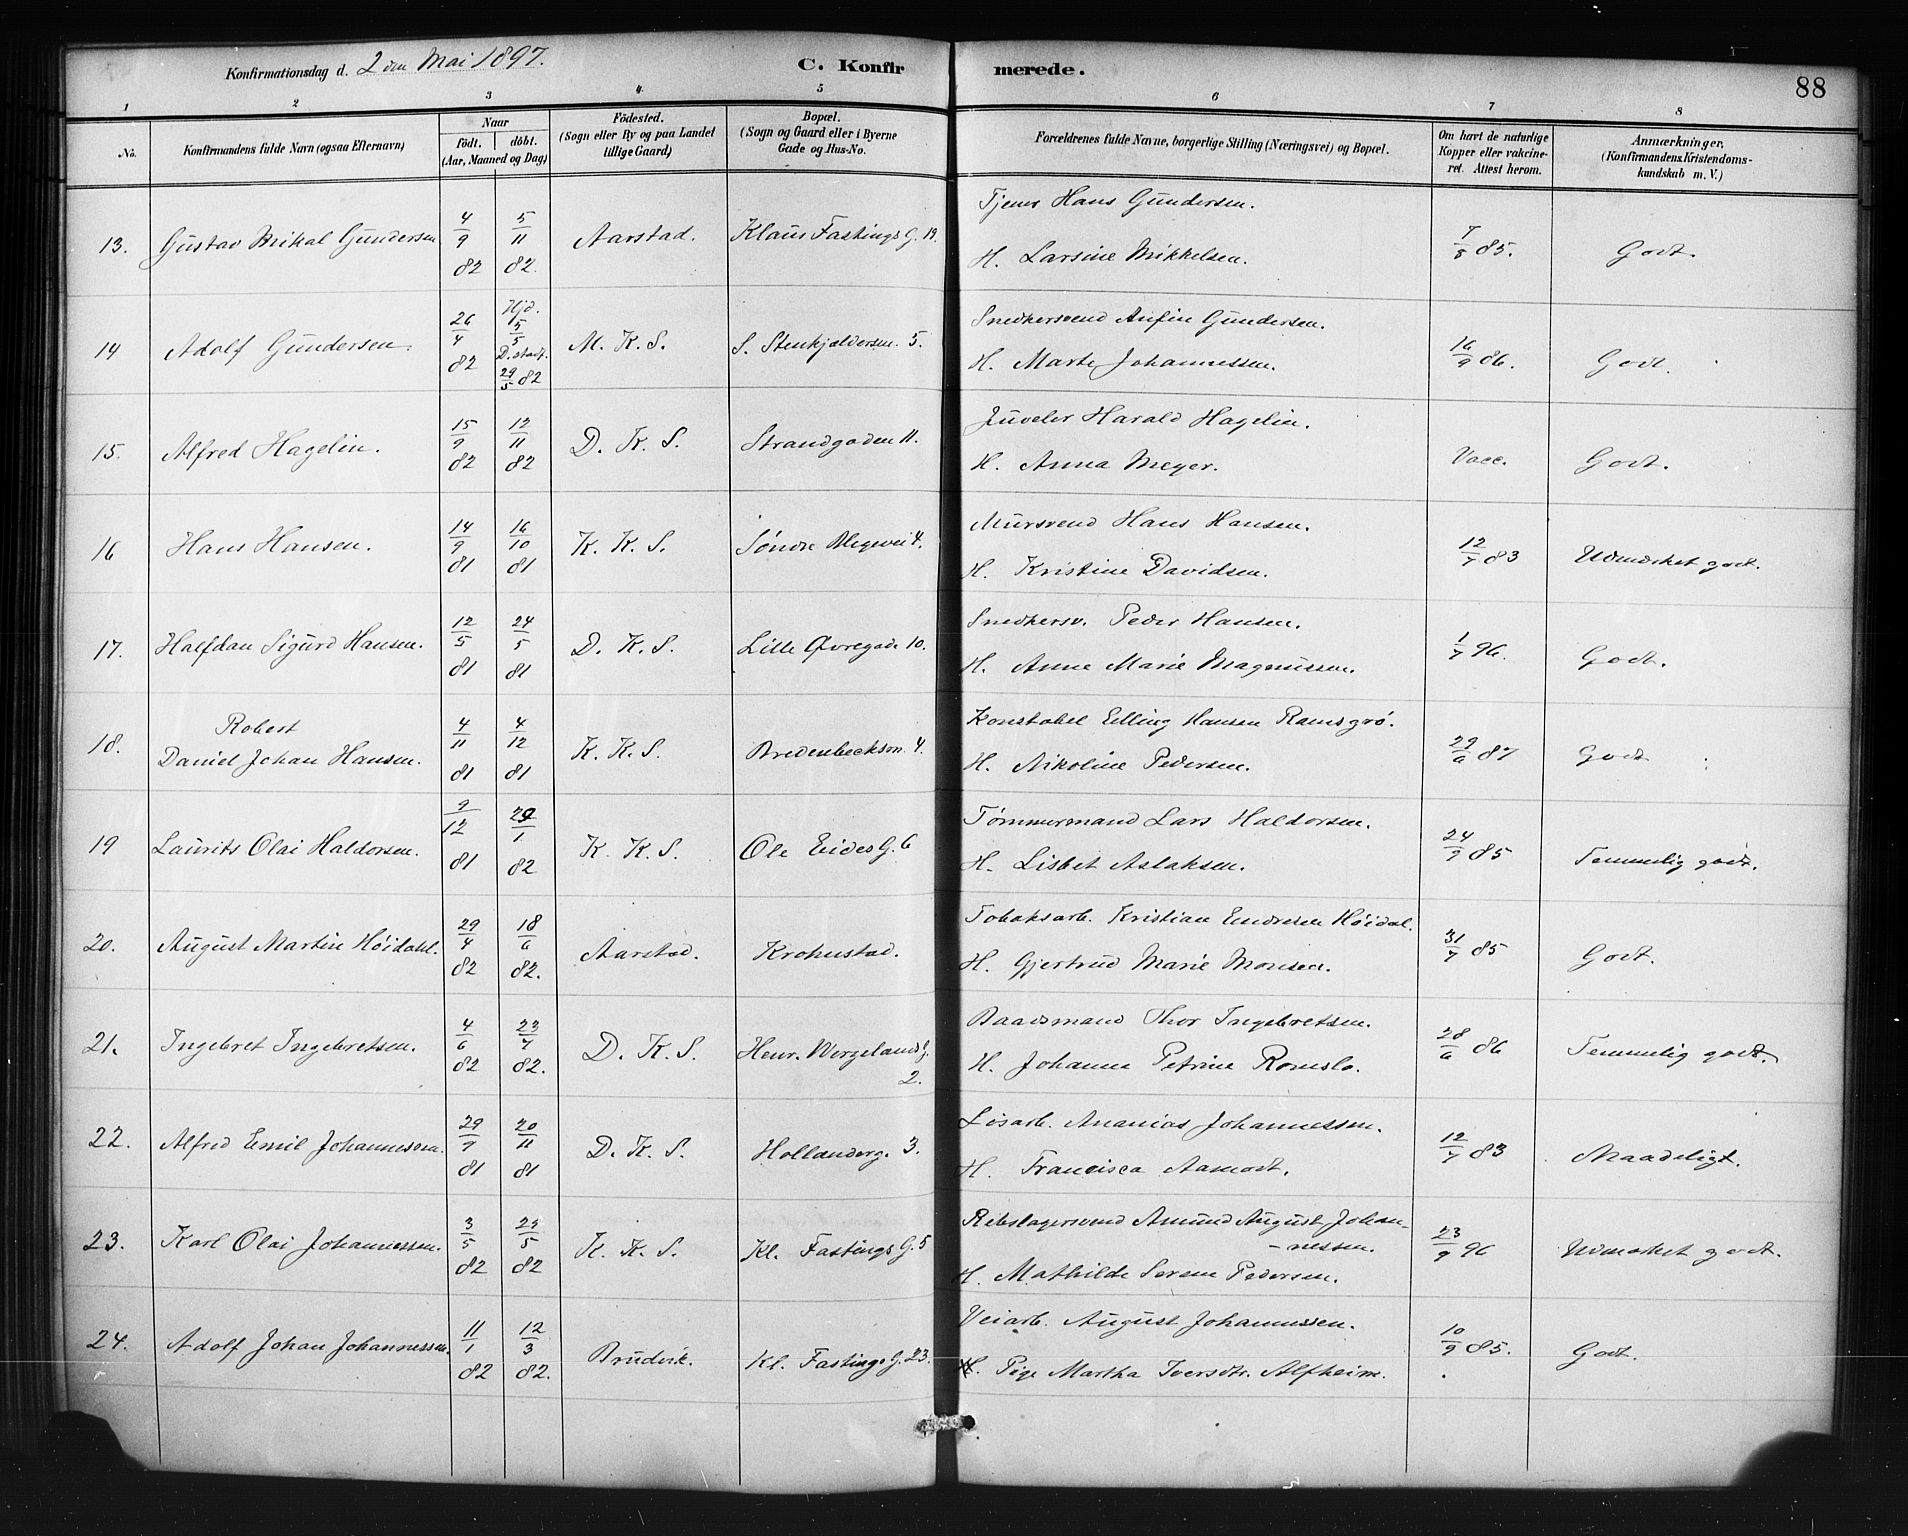 Konfirmationsdag d. 2den Mai 1897. C. Konfirmerede. 88
1 2 3 4 5 6 7 8
No. Konfirmandens fulde Navn (ogsaa Efternavn) Naar födt. döbt. (Aar, Maaned og Dag) Födested. (Sogn eller By og paa Landet tillige Gaard) Bopæl. (Sogn og Gaard eller i Byerne Gade og Hus-No. Forældrenes fulde Navne, borgerlige Stilling (Næringsvei) og Bopæl. Om havt de naturlige Kopper eller vakcineret. Attest herom. Anmærkninger, (Konfirmandens Kristendomskundskab m. V.)
13. Gustav Mikal Gundersen 4/9 82 5/11 82. Aarstad. Klaus Fastings G. 19. Tjener Hans Gundersen. 7/8 85. Godt.
H. Larsine Mikkelsen.
14 Adolf Gundersen. 26/4 82 Hjd. 5/5 D. stadf. 29/5 82 M. K. S. S. Stenkjeldersm. 5. Snedkersvend Anfin Gundersen. 16/9 86. Godt.
H. Marte Johannessen.
15. Alfred Hagelin. 15/9 82 12/11 82 D. K. S. Strandgaden 11. Juveler Harald Hagelin. Vacc. Godt.
H. Anna Meyer.
16 Hans Hansen. 14/9 81 16/10 81 K. K. S. Søndre Blegevei 4. Mursvend Hans Hansen. 12/7 83 Udmerket godt.
H. Kristine Davidsen.
17. Halfdan Sigurd Hansen. 12/5 81 24/5 81 D. K. S. Lille Øvregade 10. Snedkersv. Peder Hansen. 1/7 96. Godt.
H. Anne Marie Magnussen.
18. Robert Daniel Johan Hansen. 4/11 81 4/12 81 K. K. S. Bredenbecksm. 4. Konstabel Elling Hansen Ramsgrø. 29/6 87 Godt
H. Nikoline Pedersen.
19 Laurits Olai Haldorsen. 9/12 81 29/1 82 K. K. S. Ole Eides G. 6 Tømmermand Lars Haldorsen. 24/9 85 Temmelig godt.
H. Lisbet Aslaksen.
20. August Martin Høidahl. 29/4 82 18/6 82. Aarstad. Krohnstad. Tobaksarb. Kristian Endresen Høidal. 31/7 85 Godt.
H. Gjertrud Marie Monsen.
21. Ingebret Ingebretsen. 4/6 82 23/7 82. D. K. S. Henr. Wergelands G. 2. Baadsmand Thor Ingebretsen. 28/6 86 Temmelig godt.
H. Johanne Petrine Romslo.
22. Alfred Emil Johannessen. 29/9 81 20/11 81 D. K. S. Hollenderg. 3. Løsarb. Ananias Johannessen. 12/7 83 Maadeligt.
H. Francisca Aamodt.
23. Karl Olai Johannessen. 3/5 82 29/5 82 K. K. S. Kl. Fastings G. 5 Rebslagersvend Amund August Johannessen. 23/9 96 Udmerket godt.
H. Mathilde Serene Pedersen.
24. Adolf Johan Johannessen. 11/1 82 12/3 82. Bruvik. Kl. Fastings G. 23. Veiarb. August Johannessen. 10/9 85. Godt.
H. Pige Martha Iversdtr. Alfheim.